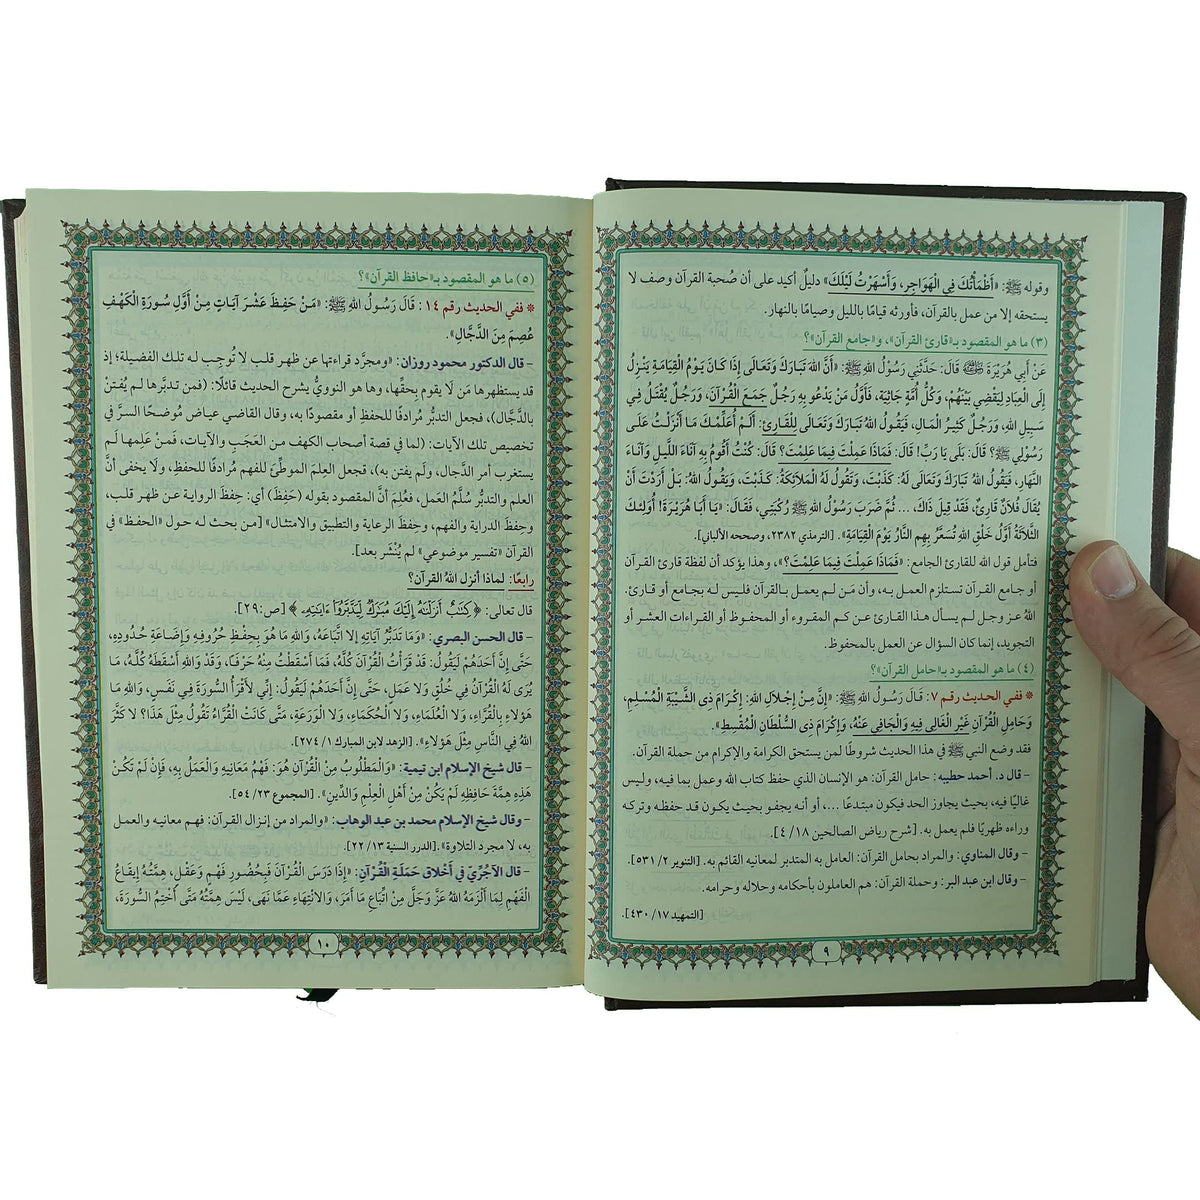 وقوله ﷺ: «أَظْمَأْتُكَ فِي الْهَوَاجِرِ، وَأَسْهَرْتُ لَيْلَكَ» دليلٌ أكيد على أن صُحبة القرآن وصف لا
يستحقه إلا من عمل بالقرآن، فأورثه قيامًا بالليل وصيامًا بالنهار.
(٣) ما هو المقصود بـ«قارئ القرآن»، و«جامع القرآن»؟
عَنْ أَبِي هُرَيْرَةَ ﵁ قَالَ: حَدَّثَنِي رَسُولُ اللهِ ﷺ: «أَنَّ اللهَ تَبَارَكَ وَتَعَالَى إِذَا كَانَ يَوْمُ الْقِيَامَةِ يَنْزِلُ
إِلَى الْعِبَادِ لِيَقْضِيَ بَيْنَهُمْ، وَكُلُّ أُمَّةٍ جَاثِيَةٌ، فَأَوَّلُ مَنْ يَدْعُو بِهِ رَجُلٌ جَمَعَ الْقُرْآنَ، وَرَجُلٌ يُقْتَلُ فِي
سَبِيلِ اللهِ، وَرَجُلٌ كَثِيرُ الْمَالِ، فَيَقُولُ اللهُ تَبَارَكَ وَتَعَالَى لِلْقَارِئِ: أَلَمْ أُعَلِّمْكَ مَا أَنْزَلْتُ عَلَى
رَسُولِي ﷺ؟ قَالَ: بَلَى يَا رَبِّ! قَالَ: فَمَاذَا عَمِلْتَ فِيمَا عَلِمْتَ؟ قَالَ: كُنْتُ أَقُومُ بِهِ آنَاءَ اللَّيْلِ وَآنَاءَ
النَّهَارِ، فَيَقُولُ اللهُ تَبَارَكَ وَتَعَالَى لَهُ: كَذَبْتَ، وَتَقُولُ لَهُ الْمَلَائِكَةُ: كَذَبْتَ، وَيَقُولُ اللهُ: بَلْ أَرَدْتَ أَنْ
يُقَالَ فُلَانٌ قَارِئٌ، فَقَدْ قِيلَ ذَاكَ، ... ثُمَّ ضَرَبَ رَسُولُ اللهِ ﷺ رُكْبَتِي، فَقَالَ: «يَا أَبَا هُرَيْرَةَ! أُولَئِكَ
الثَّلَاثَةُ أَوَّلُ خَلْقِ اللهِ تُسَعَّرُ بِهِمِ النَّارُ يَوْمَ الْقِيَامَةِ». [الترمذي ٢٣٨٢، وصححه الألباني].
فتأمل قول الله للقارئ الجامع: «فَمَاذَا عَمِلْتَ فِيمَا عَلِمْتَ؟»، وهذا يؤكد أن لفظة قارئ القرآن
أو جامع القرآن تستلزم العمل به، وأن مَن لم يعمل بالقرآن فليس له بجامع أو قارئ.
اللهُ عز وجل لم يسأل هذا القارئ عن كم المقروء أو المحفوظ أو القراءات العشر أو
التجويد، إنما كان السؤال عن العمل بالمحفوظ.
(٤) ما هو المقصود بـ«حامل القرآن»؟
* ففي الحديث رقم ٧: قَالَ رَسُولُ اللهِ ﷺ: «إِنَّ مِنْ إِجْلَالِ اللهِ: إِكْرَامَ ذِي الشَّيْبَةِ الْمُسْلِمِ،
وَحَامِلِ الْقُرْآنِ غَيْرِ الْغَالِي فِيهِ وَالْجَافِي عَنْهُ، وَإِكْرَامَ ذِي السُّلْطَانِ الْمُقْسِطِ».
فقد وضع النبي ﷺ في هذا الحديث شروطًا لمن يستحق الكرامة والإكرام من حملة القرآن.
- قال د. أحمد حطيبه: حامل القرآن: هو الإنسان الذي حفظ كتاب الله وعمل بما فيه، وليس
غاليًا فيه، بحيث يجاوز الحد فيكون مبتدعًا ...، أو أنه يجفو بحيث يكون قد حفظه وتركه
وراءه ظهريًا فلم يعمل به. [شرح رياض الصالحين ١٨/ ٤].
- وقال المناوي: والمراد بحامل القرآن: العامل به المتدبر لمعانيه القائم به. [التنوير ٢/ ٥٣١].
- وقال ابن عبد البر: وحملة القرآن: هم العاملون بأحكامه وحلاله وحرامه.
[التمهيد ١٧/ ٤٣٠].
٩
(٥) ما هو المقصود بـ«حافظ القرآن»؟
* ففي الحديث رقم ١٤: قَالَ رَسُولُ اللهِ ﷺ: «مَنْ حَفِظَ عَشْرَ آيَاتٍ مِنْ أَوَّلِ سُورَةِ الْكَهْفِ
عُصِمَ مِنَ الدَّجَّالِ».
- قال الدكتور محمود روزان: «ومجرَّد قراءتها عن ظهر قلب لا تُوجِب له تلك الفضيلة؛ إذ
قد يستظهرها مَن لا يقوم بحقِّها، وها هو النوويُّ يشرح الحديث قائلًا: (فمن تدبَّرها لم يُفتنْ
بالدَّجَّال)، فجعل التدبُّر مُرادفًا للحفظ أو مقصودًا به، وقال القاضي عياض مُوضحًا السرَّ في
تخصيص تلك الآيات: (لما في قصة أصحاب الكهف من العَجَب والآيات، فمَنْ عَلِمها لم
يستغرب أمر الدَّجال، ولم يفتن به)، فجعل العلمَ الموطِّئَ للفهم مُرادفًا للحفظ، ولا يخفى أنَّ
العلم والتدبُّر سُلَّمُ العَمل، فعُلِمَ أنَّ المقصود بقوله (حَفِظَ) أي: حِفظَ الرواية عن ظهر قلب،
وحِفظَ الدراية والفهم، وحِفظَ الرعاية والتطبيق والامتثال» [من بحث له حول «الحفظ» في
القرآن «تفسير موضوعي» لم يُنْشَر بعد].
رابعًا: لماذا أنزل اللهُ القرآن؟
قال تعالى: ﴿ كِتَٰبٌ أَنزَلْنَٰهُ إِلَيْكَ مُبَٰرَكٌ لِّيَدَّبَّرُوٓاْ ءَايَٰتِهِۦ ﴾ [ص:٢٩].
- قال الحسن البصري: «وَمَا تَدَبُّرُ آيَاتِهِ إِلَّا اتِّبَاعُهُ، وَاللهِ مَا هُوَ بِحِفْظِ حُرُوفِهِ وَإِضَاعَةِ حُدُودِهِ،
حَتَّى إِنَّ أَحَدَهُمْ لَيَقُولُ: قَدْ قَرَأْتُ الْقُرْآنَ كُلَّهُ، فَمَا أَسْقَطْتُ مِنْهُ حَرْفًا، وَقَدْ وَاللهِ أَسْقَطَهُ كُلَّهُ، مَا
يُرَى لَهُ الْقُرْآنُ فِي خُلُقٍ وَلَا عَمَلٍ، حَتَّى إِنَّ أَحَدَهُمْ لَيَقُولُ: إِنِّي لَأَقْرَأُ السُّورَةَ فِي نَفَسٍ، وَاللهِ مَا
هَؤُلَاءِ بِالْقُرَّاءِ، وَلَا الْعُلَمَاءِ، وَلَا الْحُكَمَاءِ، وَلَا الْوَرَعَةِ، مَتَى كَانَتْ الْقُرَّاءُ تَقُولُ مِثْلَ هَذَا؟ لَا كَثَّرَ
اللهُ فِي النَّاسِ مِثْلَ هَؤُلَاءِ». [الزهد لابن المبارك ١/ ٢٧٤].
- قال شيخ الإسلام ابن تيمية: «وَالْمَطْلُوبُ مِنْ الْقُرْآنِ هُوَ: فَهْمُ مَعَانِيهِ وَالْعَمَلُ بِهِ، فَإِنْ لَمْ تَكُنْ
هَذِهِ هِمَّةَ حَافِظِهِ لَمْ يَكُنْ مِنْ أَهْلِ الْعِلْمِ وَالدِّينِ». [المجموع ٢٣/ ٥٤].
- وقال شيخ الإسلام محمد بن عبد الوهاب: «والمراد من إنزال القرآن: فهم معانيه والعمل
به، لا مجرد التلاوة». [الدرر السنية ١٣/ ٢٢].
- قال الآجُرِّيّ في أَخْلَاقِ حَمَلَةِ الْقُرْآنِ: «إِذَا دَرَسَ الْقُرْآنَ فَبِحُضُورِ فَهْمٍ وَعَقْلٍ، هِمَّتُهُ إِيقَاعُ
الْفَهْمِ لِمَا أَلْزَمَهُ اللهُ عَزَّ وَجَلَّ مِنْ اتِّبَاعِ مَا أَمَرَ، وَالانْتِهَاءِ عَمَّا نَهَى، لَيْسَ هِمَّتُهُ مَتَى أَخْتِمُ السُّورَةَ،
١٠